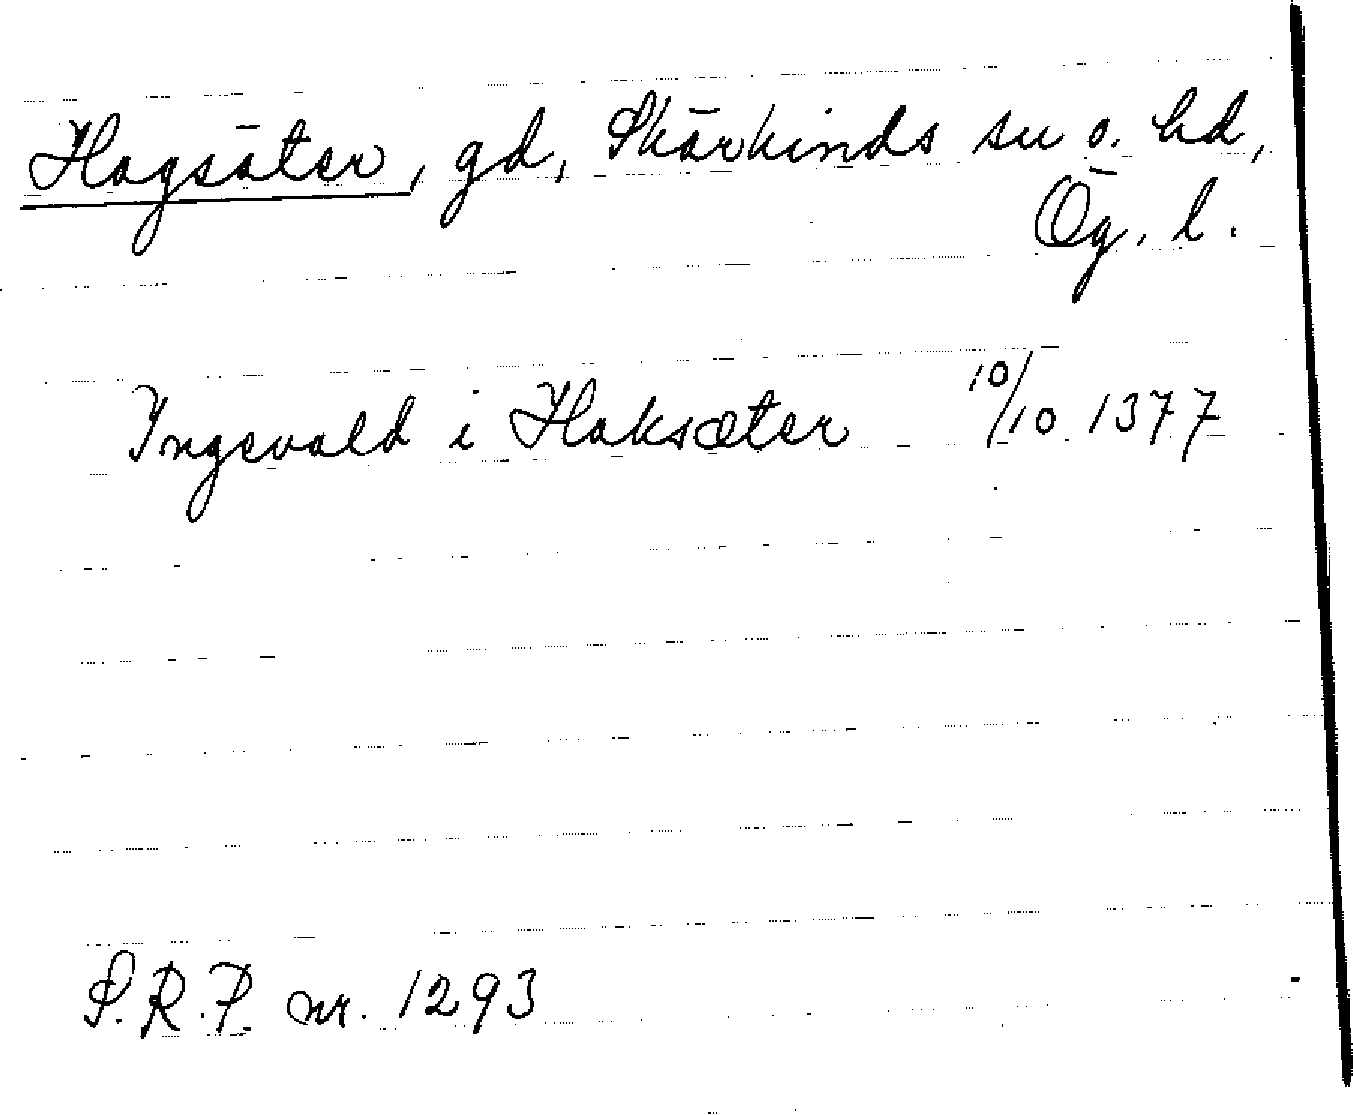 Hagsäter, gd, Skärkinds sn o. hd,
Ög. l.
Ingevald i Haksæter 10/10 1377
S.R.P. nr. 1293